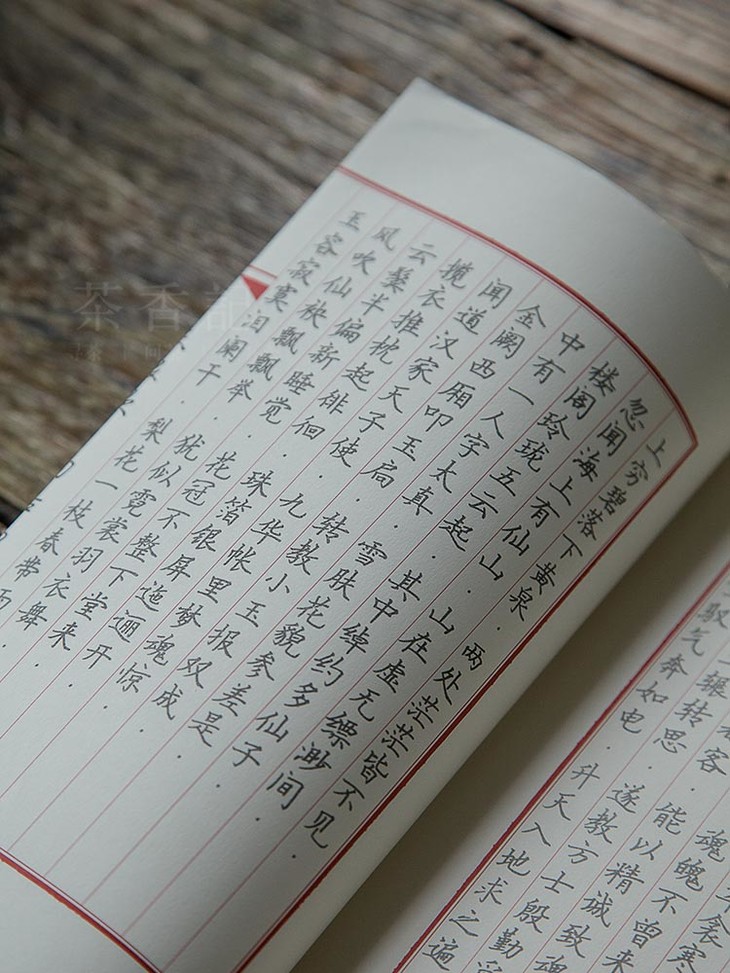 衾寒
魂魄不曾来
客.能以精诚致魂
辗转思.遂教方士殷勤
驭气奔如电.升天入地求之遍
上穷碧落下黄泉.两处茫茫皆不见.
忽闻海上有仙山.山在虚无缥渺间.
楼阁玲珑五云起.其中绰约多仙子.
中有一人字太真.雪肤花貌参差是.
金阙西厢叩玉局.转教小玉报双成.
闻道汉家天子使.九华帐里梦魂惊.
揽衣推枕起徘徊.珠箔银屏迤逦开.
云鬓半偏新睡觉.花冠不整下堂来.
风吹仙袂飘飘举.犹似霓裳羽衣舞.
玉容寂寞泪阑干.梨花一枝春带雨.
茶香記